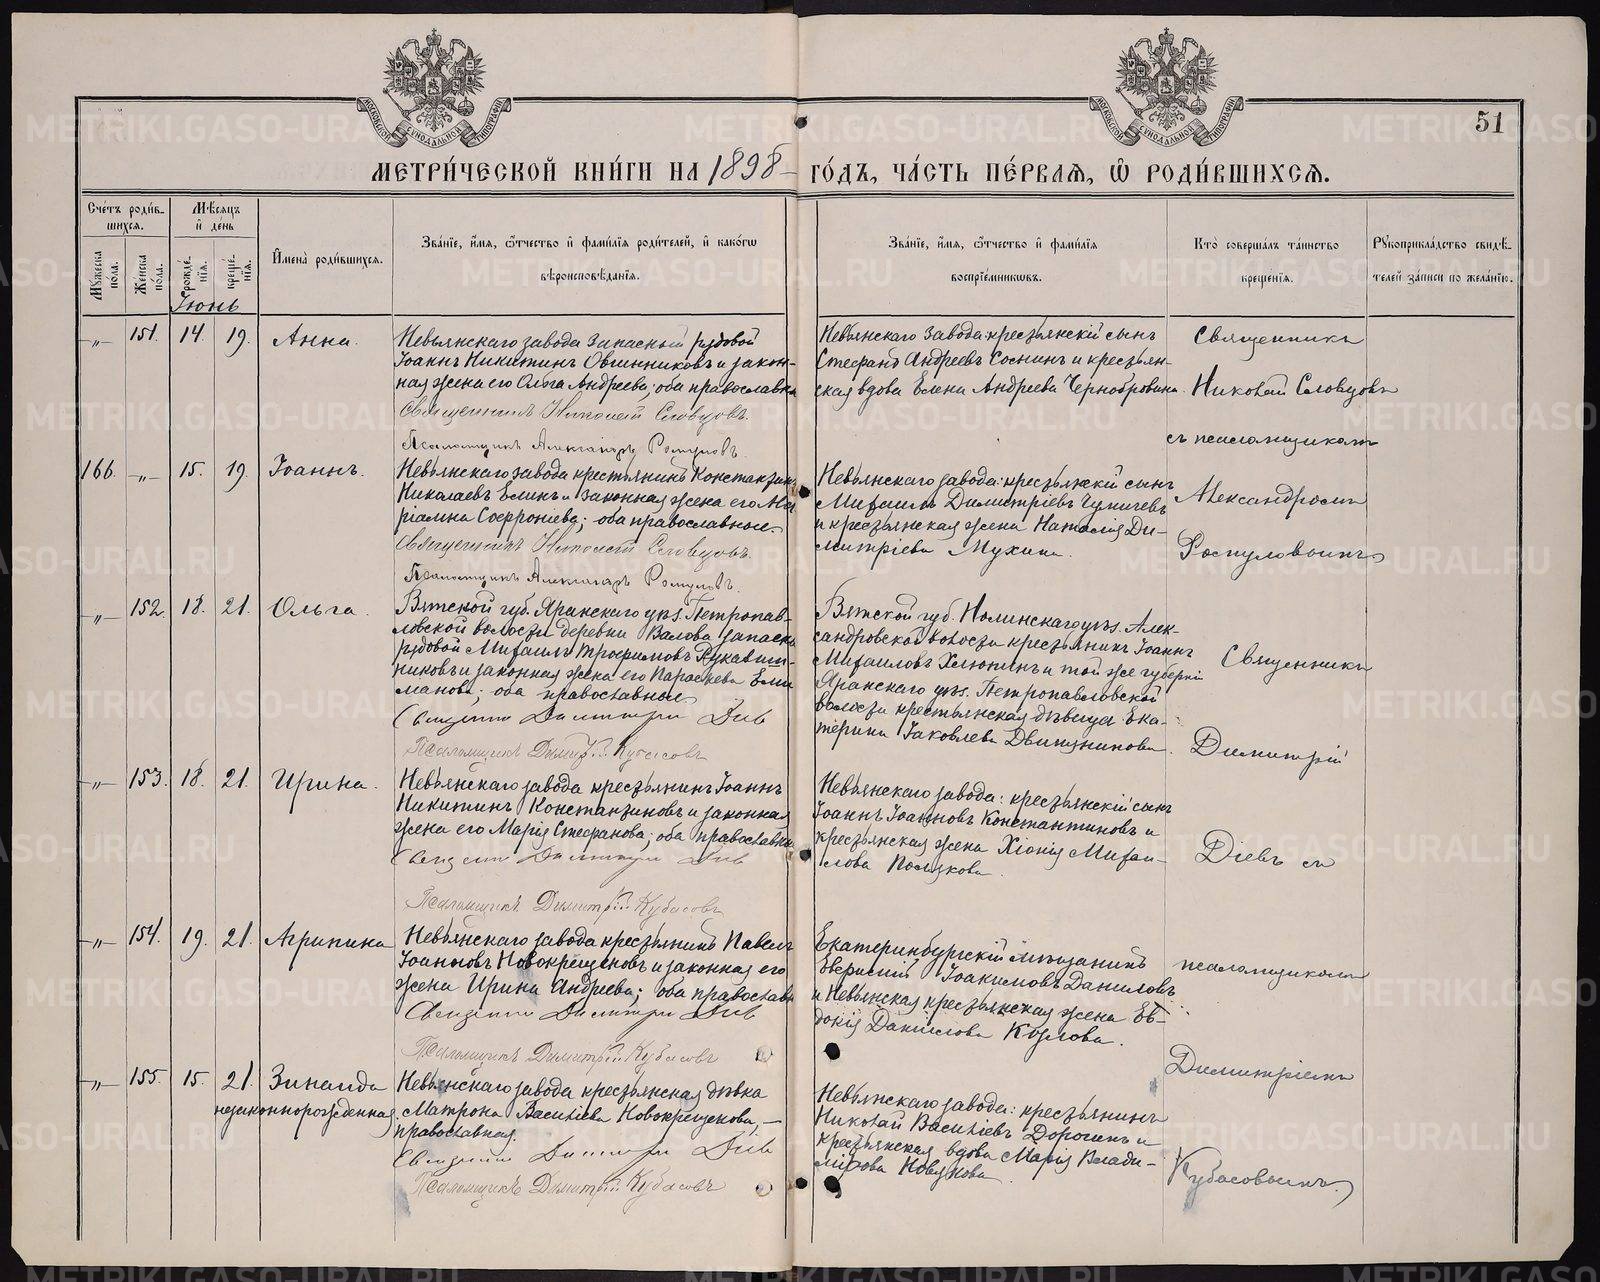 51
МЕТРИ́ЧЕСКОЙ КНИ́ГИ НА 1898
ГО́ДЪ, ЧА́СТЬ ПЕ́РВАЯ, Ѡ РОДИ́ВШИХСЯ.
Сче́тъ роди́в-
шихся.
Мѣ́сяцъ
и҆ де́нь
И҆мена̀ роди́вшихся.
Зва́нїе, и҆́мя, ѻ҆́тчество и҆ фами́лїя роди́телей, и҆ како́гѡ
вѣроисповѣ́данїя.
Зва́нїе, и҆́мя, ѻ҆́тчество и҆ фами́лїя
воспрїе́мникѡвъ.
Кто̀ соверша́лъ та́инство
креще́нїя.
Рꙋкоприкла́дство свидѣ́-
телей за́писи по жела́нїю.
Мꙋ́жеска
по́ла.
Же́нска
по́ла.
Рожде́-
нїя.
Креще́-
нїя.
Іюнь
-„- 151. 14. 19. Анна.
Невьянскаго завода запасный рядовой
Іоаннъ Никитинъ Овчинниковъ и закон-
ная жена его Ольга Андреева; оба православны
Священникъ Николай Словцовъ.
Псаломщикъ Александръ
Невьянскаго завода: крестьянскій сынъ
Стефанъ Андреевъ Соснинъ и крестьян-
ская вдова Елена Андреева Чернобровина
Священникъ
Николай Словцовъ
съ псаломщикомъ
166. -„- 15. 19. Іоаннъ.
Невьянскаго завода крестьянинъ Константинъ
Николаевъ и законная жена его Ма-
ріамна Софроніева; оба православные.
Священникъ Николай Словцовъ.
Псаломщикъ Александръ
Невьянскаго завода: крестьянскій сынъ
Михаилъ Димитріевъ
и крестьянская жена Наталія Ди-
митріева Мухина.
Александромъ
-„- 152. 18. 21. Ольга.
Вятской губ. Яранскаго уѣз. Петропав-
ловской волости деревни Валова запасн.
рядовой Михаилъ Трофимовъ Рукавиш-
никовъ и законная жена его Параскева Ели
манова; оба православные
Священникъ Димитрій Діевъ
Псаломщикъ Димитрій Кубасовъ
Вятской губ. Нолинскаго уѣз. Алек-
сандровской волости крестьянинъ Іоаннъ
Михаиловъ и той же губерніи
Яранскаго уѣз. Петропавловской
волости крестьянская дѣвица Ека-
терина Іаковлева
Священникъ
Димитрій
-„- 153. 18. 21. Ирина.
Невьянскаго завода крестьянинъ Іоаннъ
Никитинъ Константиновъ и законная
жена его Марія Стефанова; оба православны
Священникъ Димитрій Діевъ
Псаломщикъ Димитрій Кубасовъ
Невьянскаго завода: крестьянскій сынъ
Іоаннъ Іоанновъ Константиновъ и
крестьянская жена Хіонія Михаи-
лова Полякова.
Діевъ съ
-„- 154. 19. 21. Агрипина
Невьянскаго завода крестьянинъ Павелъ
Іоанновъ Новокрещеновъ и законная его
жена Ирина Андреева; оба православн.
Священникъ Димитрій Діевъ
Псаломщикъ Димитрій Кубасовъ
Екатеринбургскій мѣщанинъ
Іоакимовъ Даниловъ
и Невьянская крестьянская жена Ев-
докія Даніилова Козлова.
псаломщикомъ
Димитріемъ
-„- 155. 15. 21. Зинаида
незаконнорожденная
Невьянскаго завода крестьянская дѣвка
Матрона Василіева Новокрещенова, —
православная.
Священникъ Димитрій Діевъ
Псаломщикъ Димитрій Кубасовъ
Невьянскаго завода: крестьянинъ
Николай Василіевъ Дорогинъ и
крестьянская вдова Марія Влади-
мірова
Кубасовымъ.
METRIKI.GASO-URAL.RU